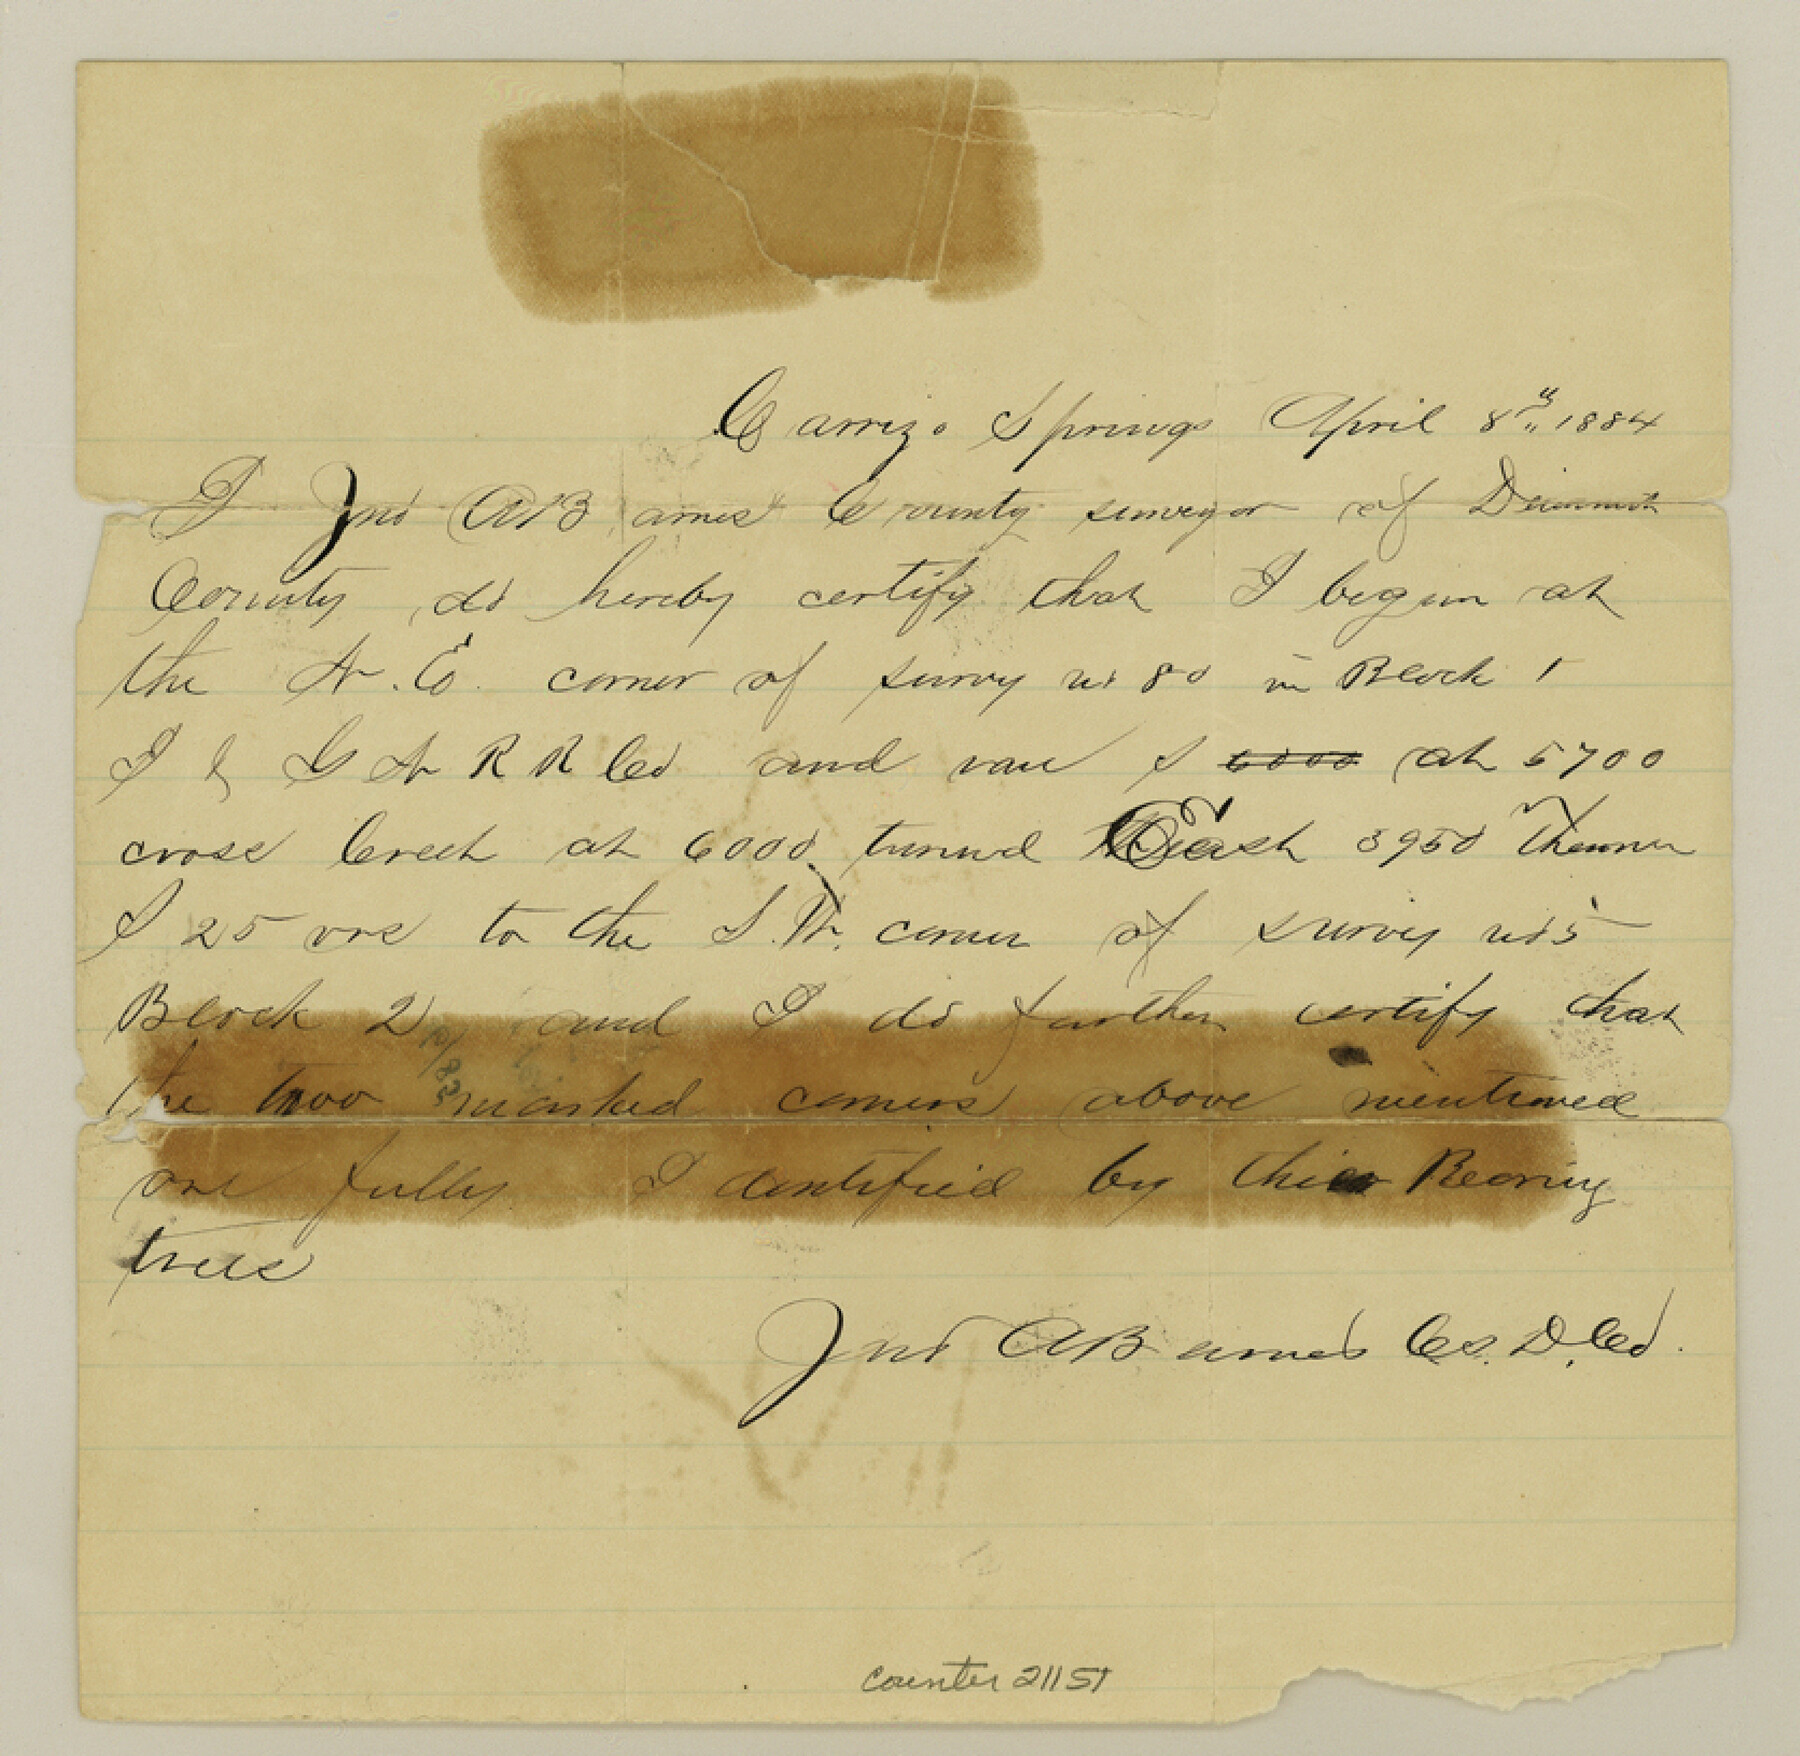 Carrizo Springs April 8th 1884
I Jno A Barnes County surveyor of Dimmit
County do hereby certify that I begun at
the N.E. corner of survey no 80 in Block 1
I & G N R R Co and run S 6000 at 5700
cross Creek at 6000 turned East 3950 Thence
S 25 vrs to the S.W. corner of survey no 5
Block 2 and I do further certify that
the two marked corners above mentioned
are fully I dentified by thier Bearing
trees
Jno A Barnes Cs. D. Co.
counter 21151